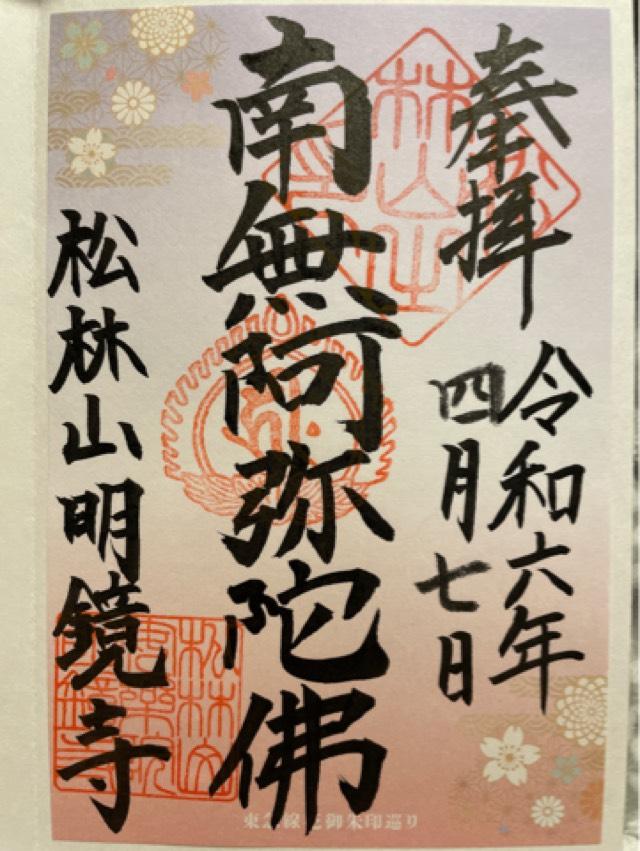 奉拝
令和六年
四月七日
南無阿弥陀佛
松林山明鏡寺
東急線花御朱印巡り